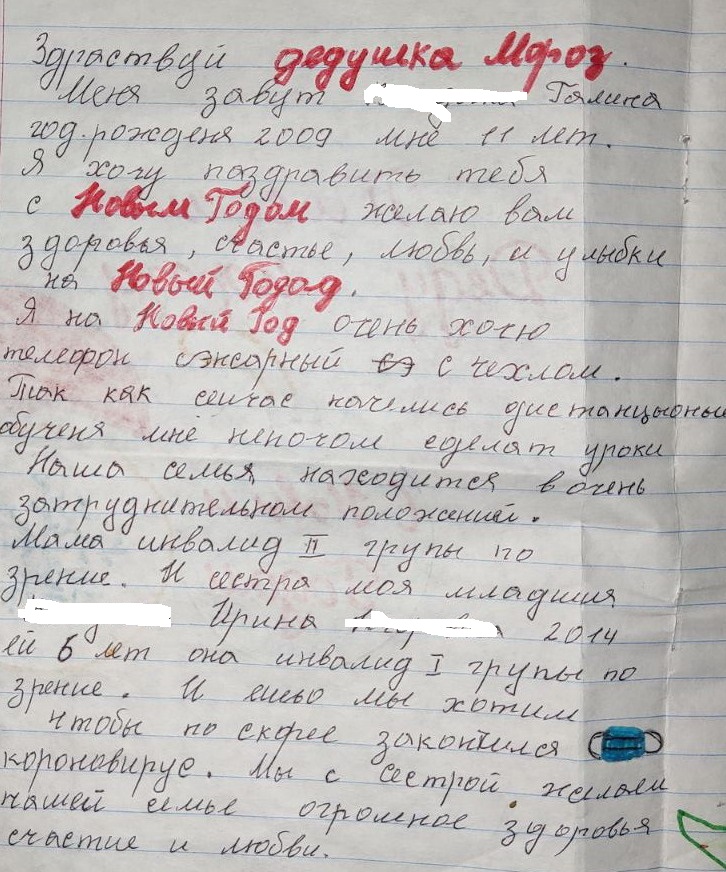 Здраствуй дедушка Мороз.
Меня завут Галина
год. рожденя 2009 мне 11 лет.
Я хочу паздравить тебя
с Новым Годом желаю вам
здоровья, счастье, любвь, и улыбки
на Новый Годад.
Я на Новый Год очень хочю
телефон сэнсарный с чехлом.
Так как сейчас начелись дистанцыоный
обученя мне непочом сделат уроки
Наша семья находится в очень
затруднительном положений.
Мама инвалид II групы по
зрение. И сестра моя младшия
Ирина 2014
ей 6 лет она инвалид I групы по
зрение. И мы хотим
чтобы по скорее закончился
короновирус. Мы с сестрой желаем
нашей семье огромное здоровья
счастие и любви.